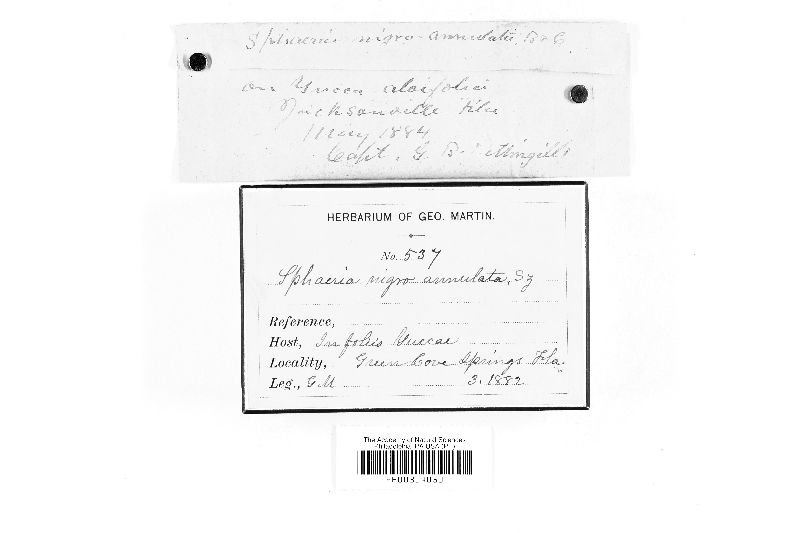 Sphaeria nigro-annulata, B & C
on Yucca aloifolia
Jacksonville Fla
May 1884
Capt. G.
HERBARIUM OF GEO. MARTIN.
No. 537
Sphaeria nigro annulata, Sz
Reference,
Host, In foliis Yuccae
Locality, Green Cove Springs Fla.
Leg., GM 3. 1882
The Academy of Natural Sciences
Philadelphia, PA USA (PH)